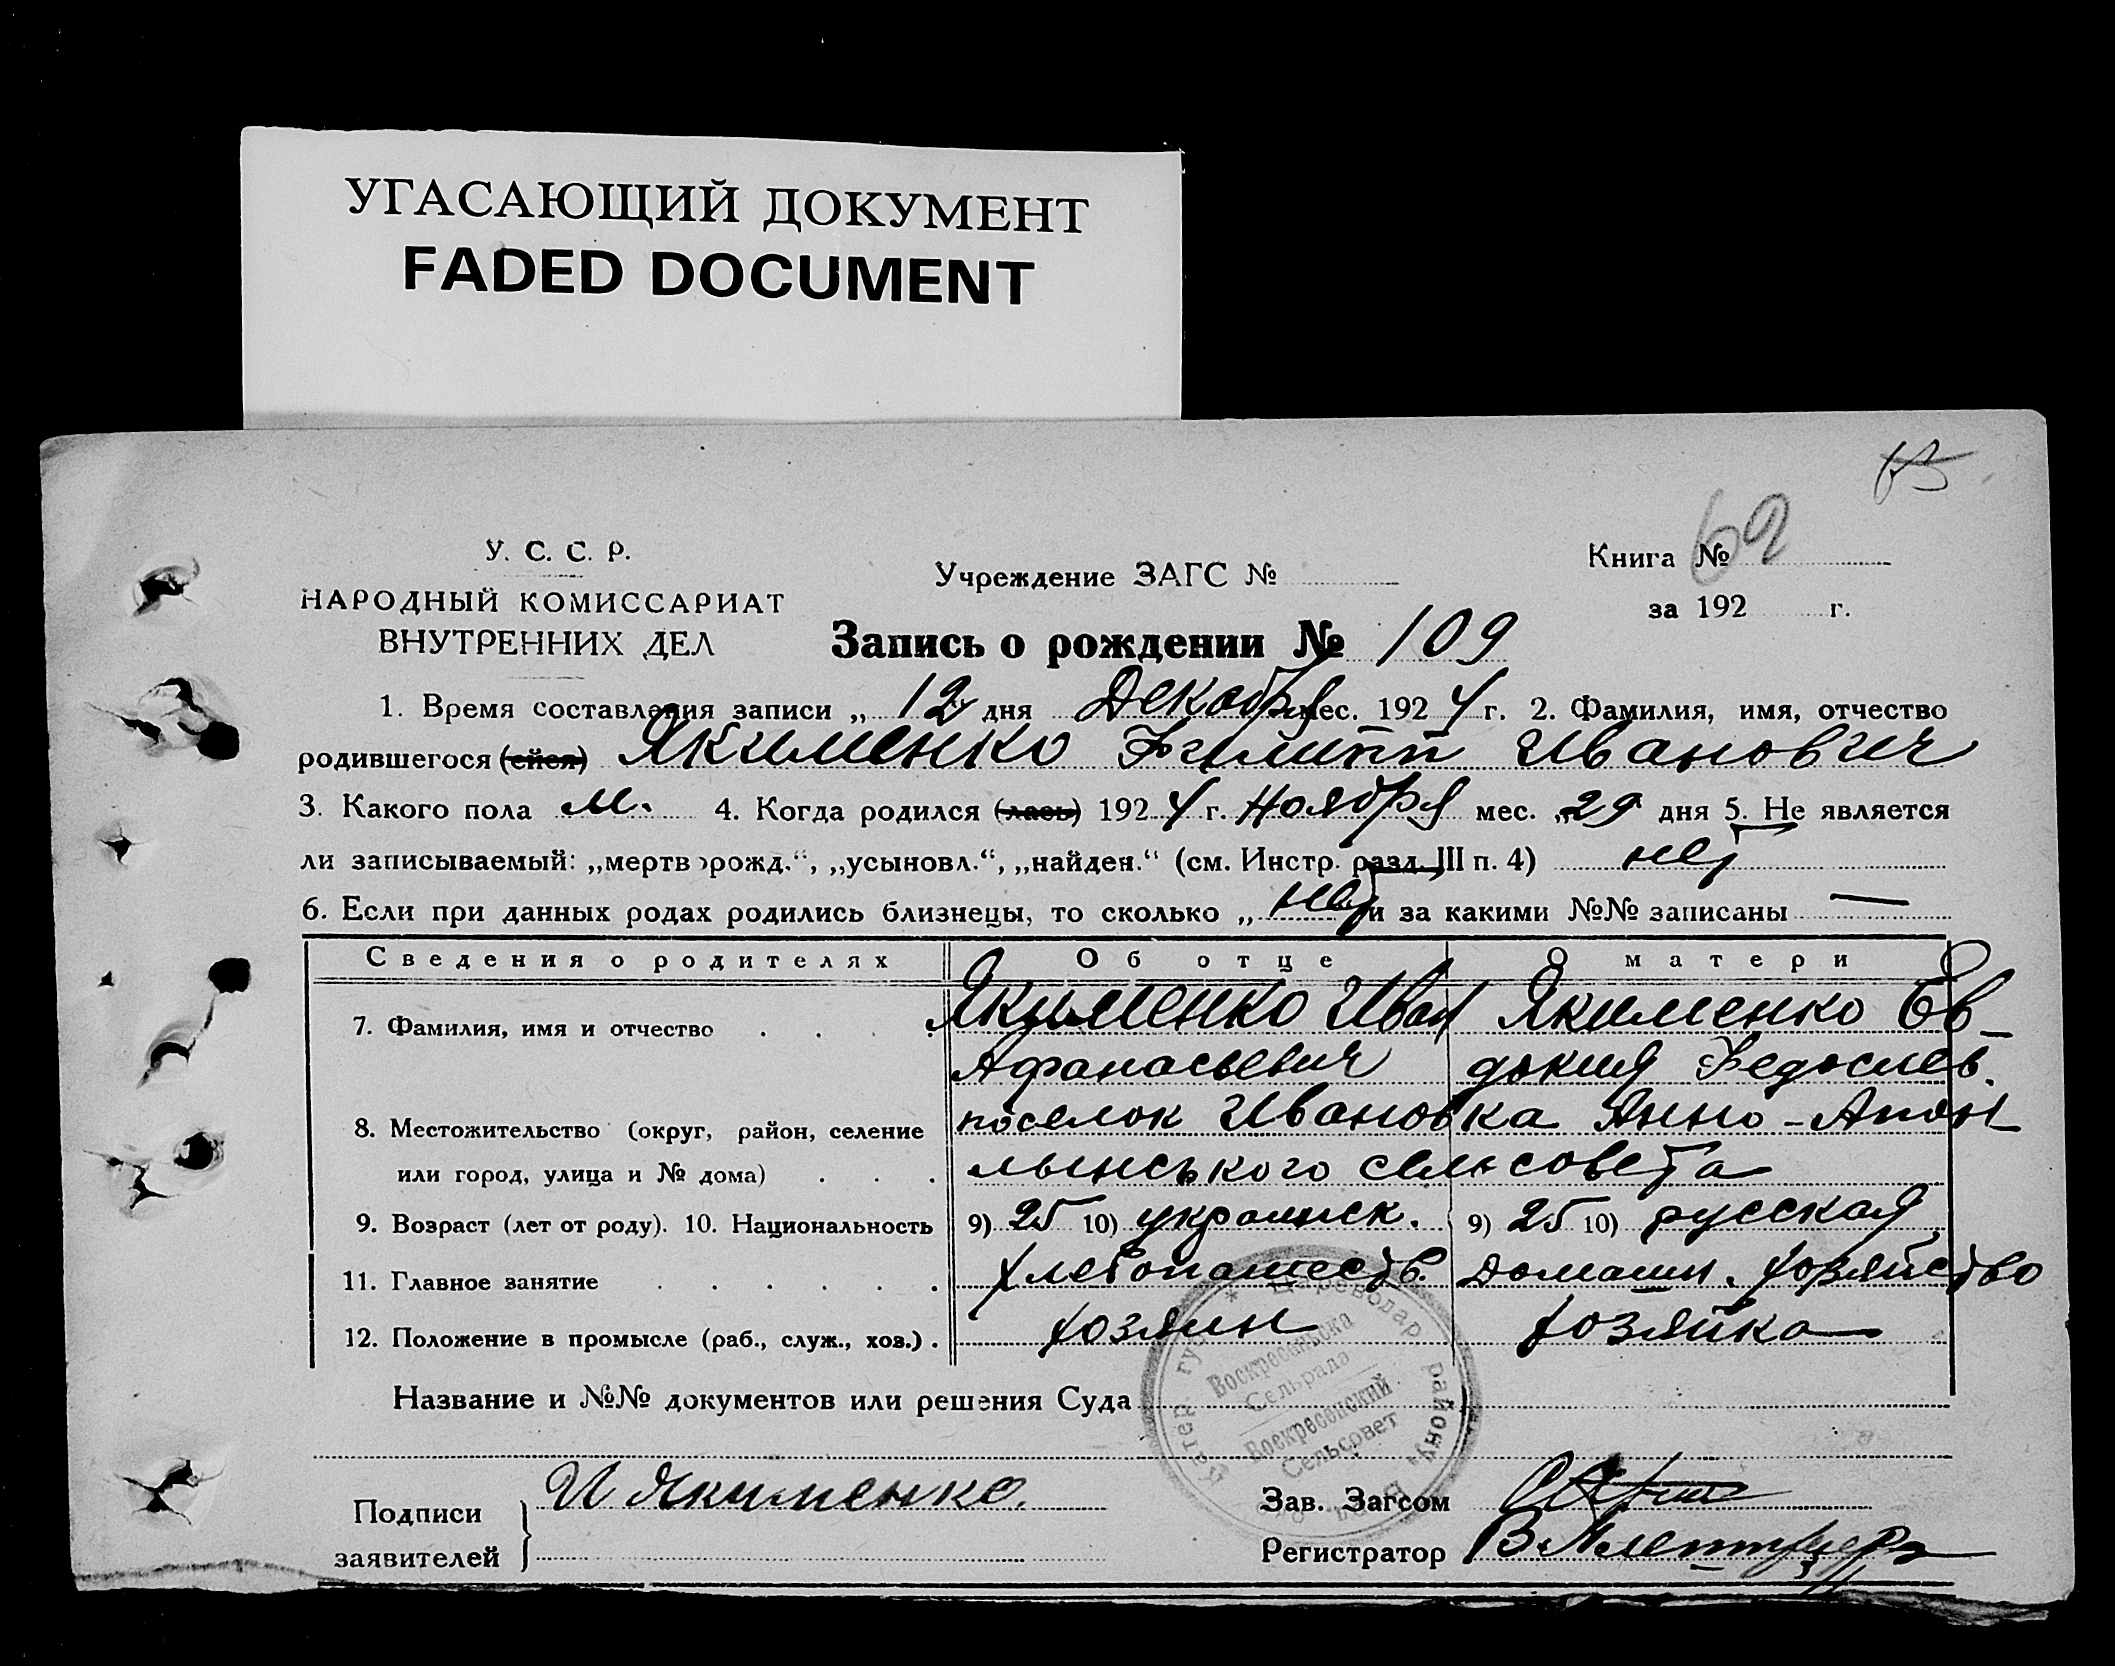 УГАСАЮЩИЙ ДОКУМЕНТ
FADED DOCUMENT
У. С. С. Р.
НАРОДНЫЙ КОМИССАРИАТ
ВНУТРЕННИХ ДЕЛ
Учреждение ЗАГС №
Книга № 69
за 192 г.
Запись о рождении № 109
1. Время составления записи „ 12 дня Декабря мес. 192 4 г. 2. Фамилия, имя, отчество
родившегося (ейся) Якименко Филипп Иванович
3. Какого пола м. 4. Когда родился (лась) 192 4 г. Ноября мес. „29 дня 5. Не является
ли записываемый: „мертворожд.“, „усыновл.“, „найден.“ (см. Инстр. разд. III п. 4) нет
6. Если при данных родах родились близнецы, то сколько „ нет и за какими №№ записаны —
Сведения о родителях Об отце О матери
7. Фамилия, имя и отчество . . . . Якименко Иван Якименко Ев-
Афанасьевич докия Федосиев.
8. Местожительство (округ, район, селение поселок Ивановка Анно-
или город, улица и № дома) . . . лынського сельсовета
9. Возраст (лет от роду). 10. Национальность 9) 25 10) украинск. 9) 25 10) русская
11. Главное занятие . . . . . . хлебопашеств. Домашн. хозяйство
12. Положение в промысле (раб., служ., хоз.) . хозяин хозяйка
Цареводар району
Воскресенська
Сельрада
Воскресенский
Сельсовет
Название и №№ документов или решения Суда
Подписи
заявителей
И Якименко.
Зав. Загсом
Регистратор